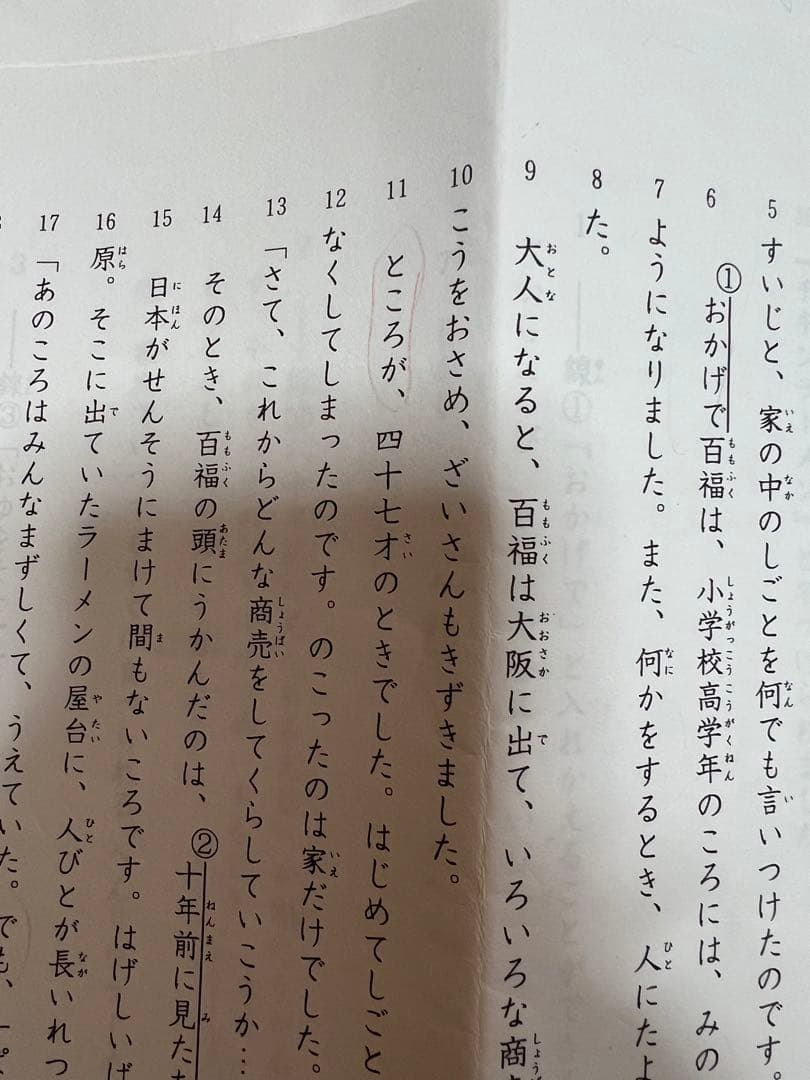 5 すいじと、家の中のしごとを何でも言いつけたのです。
6 ①おかげで百福は、小学校高学年のころには、みの
7 ようになりました。また、何かをするとき、人にたよ
8 た。
9 大人になると、百福は大阪に出て、いろいろな商
10 こうをおさめ、ざいさんもきずきました。
11 ところが、四十七才のときでした。はじめてしごと
12 なくしてしまったのです。のこったのは家だけでした。
13 「さて、これからどんな商売をしてくらしていこうか…
14 そのとき、百福の頭にうかんだのは、②十年前に見た
15 日本がせんそうにまけて間もないころです。はげしいば
16 原。そこに出ていたラーメンの屋台に、人びとが長いれつ
17 「あのころはみんなまずしくて、うえていた。でも、一